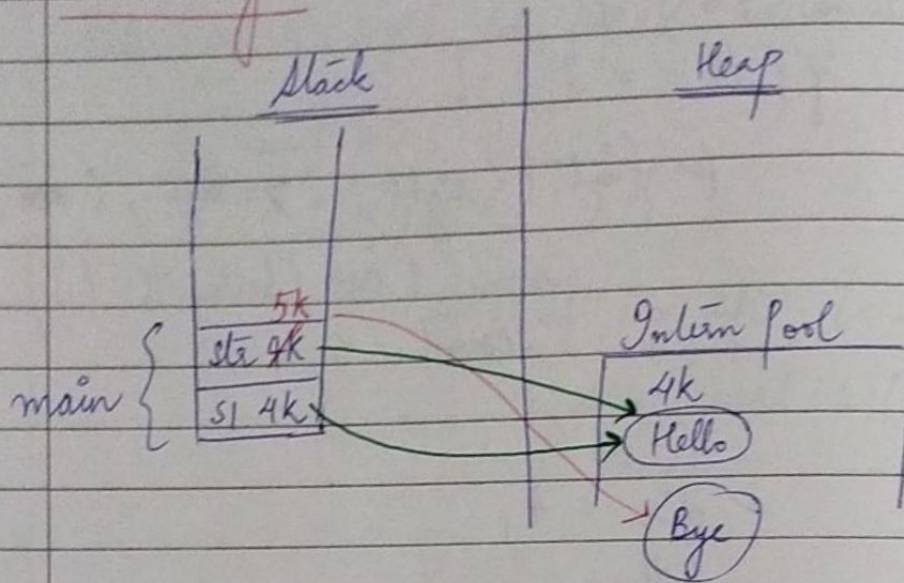 Stack
Heap
5k
str 4k
s1 4k
main
Intern Pool
4k
Hello
Bye